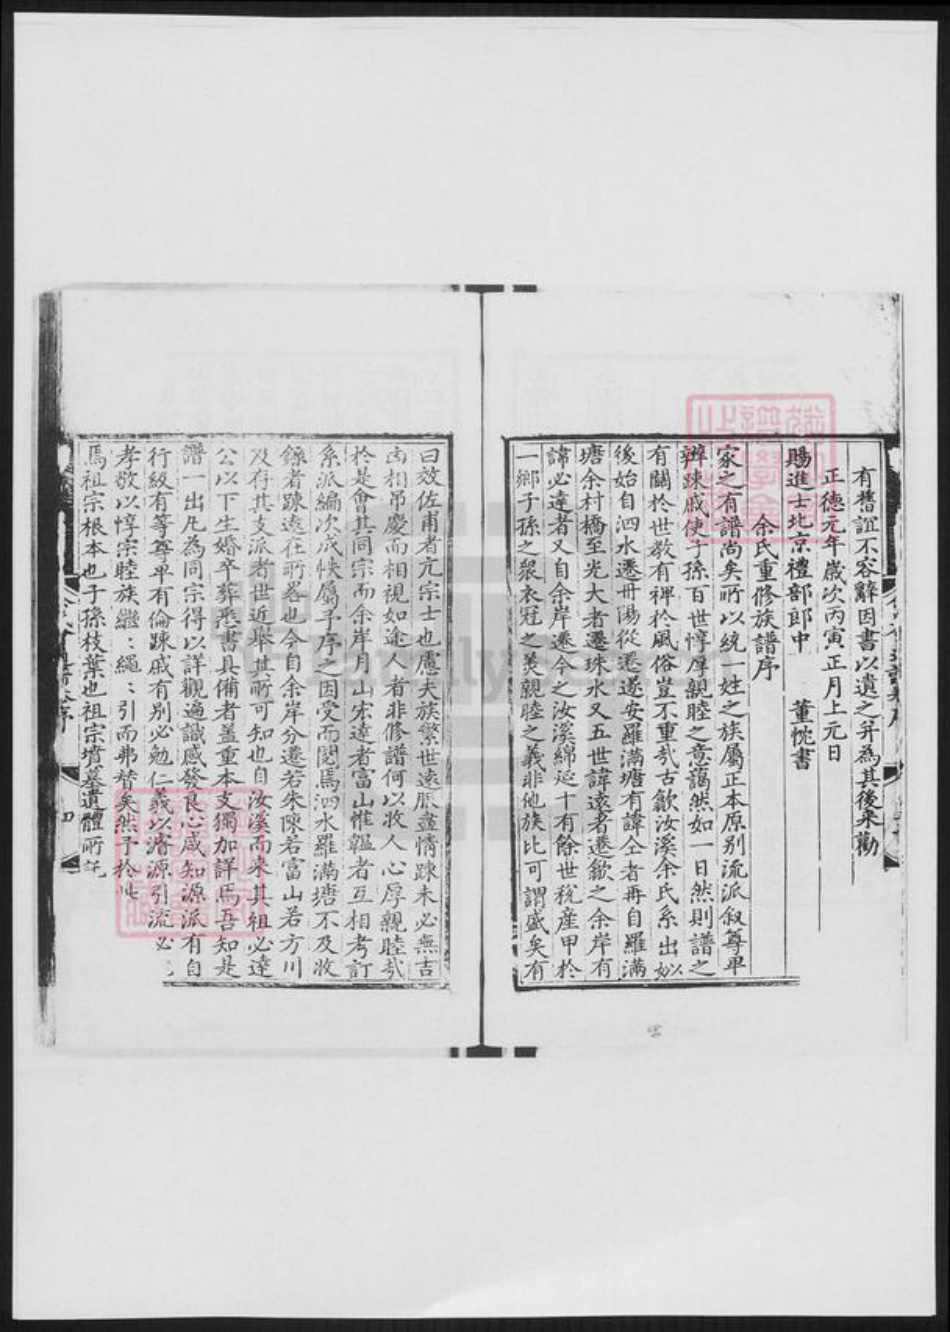 有舊誼不容辭因書以遺之并為其後来勸
正德元年歲次丙寅正月上元日
賜進士北京禮部郎中 董忱書
余氏重修族譜序
家之有譜尚矣所以統一姓之族屬正本原别流派叙尊卑
辨踈戚使子孫百世惇厚親睦之意藹然如一日然則譜之
有關於世教有裨於風俗豈不重㢤古歙汝溪余氏系出姒
後始自泗水遷丹陽從遷遂安羅滿塘有諱仝者再自羅滿
塘余村橋至光大者遷珠水又五世諱遠者遷歙之余岸有
諱必達者又自余岸遷今之汝溪綿延十有餘世税産甲於
一鄉子孫之衆衣冠之美親睦之義非他族比可謂盛矣有
曰效佐甫者亢宗士也慮夫族繁世遠服盡情踈未必無吉
凶相吊慶而相視如途人者非修譜何以收人心厚親睦㢤
於是會其同宗而余岸月山宋達者富山惟韞者互相考訂
系派編次成帙屬予序之因受而閱焉泗水羅滿塘不及收
錄者踈遠在所畧也今自余岸分遷若朱陳若富山若方川
及存其支派者世近舉其所可知也自汝溪而来其祖必達
公以下生婚卒葬悉書具備者葢重本支獨加詳焉吾知是
譜一出凡為同宗得以詳觀遍識感發良心咸知源派有自
行級有等尊卑有倫踈戚有别必勉仁義以濬源引流
孝敬以惇宗睦族繼:繩:引而弗替矣然予於
焉祖宗根本也子孫枝葉也祖宗墳墓遺體所託
四